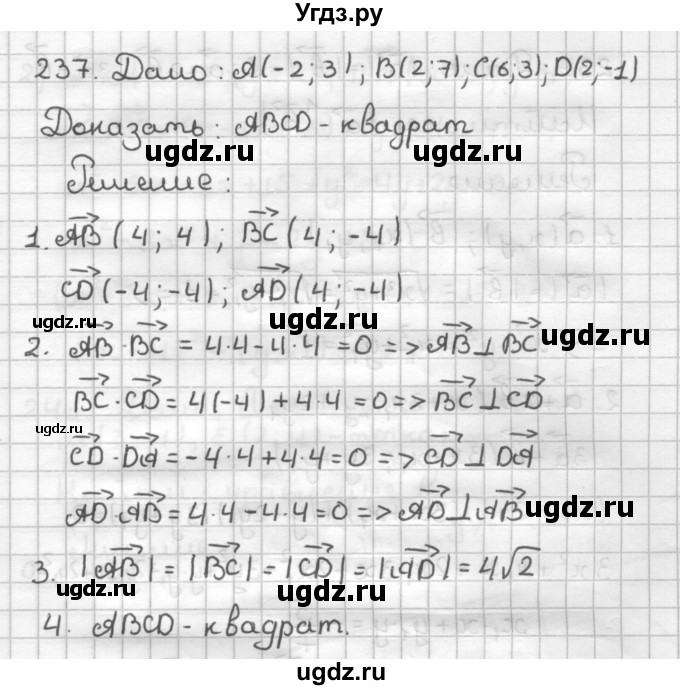 Угдз.ру
237. Дано: A(-2; 3); B(2; 7); C(6; 3); D(2; -1)
Доказать: ABCD - квадрат
ugdz.ru ugdz.ru
Решение:
1. AB (4; 4); BC (4; -4)
CD (-4; -4); AD (4; -4)
ugdz.ru ugdz.ru
2. AB · BC = 4·4 - 4·4 = 0 => AB ⊥ BC
BC · CD = 4(-4) + 4·4 = 0 => BC ⊥ CD
ugdz.ru
CD · DA = -4·4 + 4·4 = 0 => CD ⊥ DA
AD · AB = 4·4 - 4·4 = 0 => AD ⊥ AB
ugdz.ru
3. |AB| = |BC| = |CD| = |AD| = 4√2
ugdz.ru ugdz.ru
4. ABCD - квадрат.
ugdz.ru